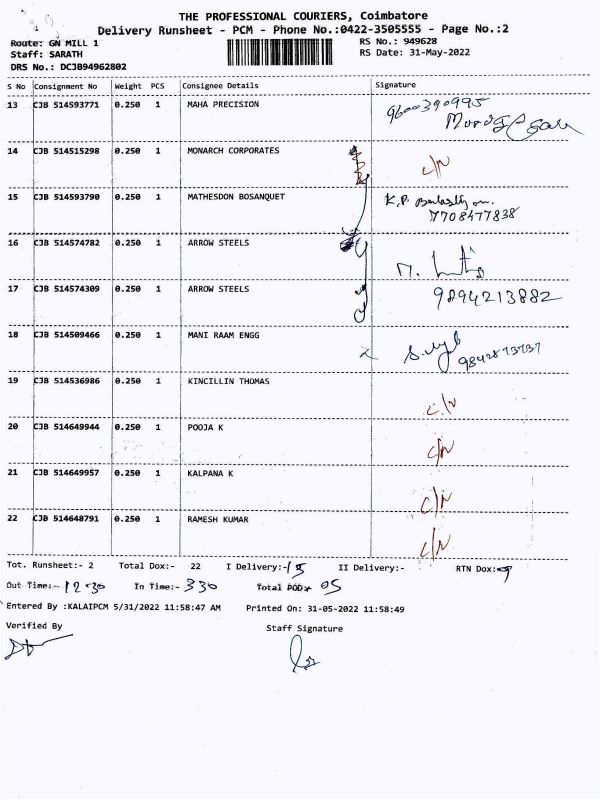 THE PROFESSIONAL COURIERS, Coimbatore
Delivery Runsheet - PCM - Phone No.:0422-3505555 - Page No.:2
Route: GN MILL 1 RS No.: 949628
Staff: SARATH RS Date: 31-May-2022
DRS No.: DCJB94962802
S No Consignment No Weight PCS Consignee Details Signature
13 CJB 514593771 0.250 1 MAHA PRECISION 9600390995
14 CJB 514515298 0.250 1 MONARCH CORPORATES C/N
15 CJB 514593790 0.250 1 MATHESDON BOSANQUET K.P.
7708477838
16 CJB 514574782 0.250 1 ARROW STEELS
17 CJB 514574309 0.250 1 ARROW STEELS 9894213882
18 CJB 514509466 0.250 1 MANI RAAM ENGG
19 CJB 514536986 0.250 1 KINCILLIN THOMAS C/N
20 CJB 514649944 0.250 1 POOJA K C/N
21 CJB 514649957 0.250 1 KALPANA K C/N
22 CJB 514648791 0.250 1 RAMESH KUMAR C/N
Tot. Runsheet:- 2 Total Dox:- 22 I Delivery:- 15 II Delivery:- RTN Dox:-
Out Time:- 12 30 In Time:- 330 Total POD:- 05
Entered By :KALAIPCM 5/31/2022 11:58:47 AM Printed On: 31-05-2022 11:58:49
Verified By Staff Signature